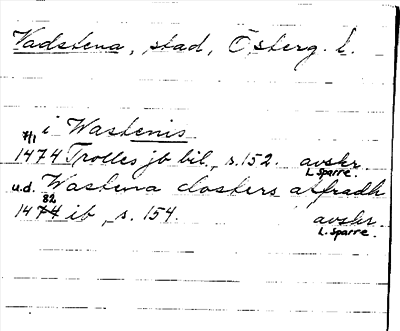 Vadstena, stad, Österg. l.
i Wastenis
7/1 1474 Trolles jb bil., s. 152. avskr. L. Sparre.
u.d. Wastena closters atfradh
82
1474 ib., s. 154. avskr. L. Sparre.